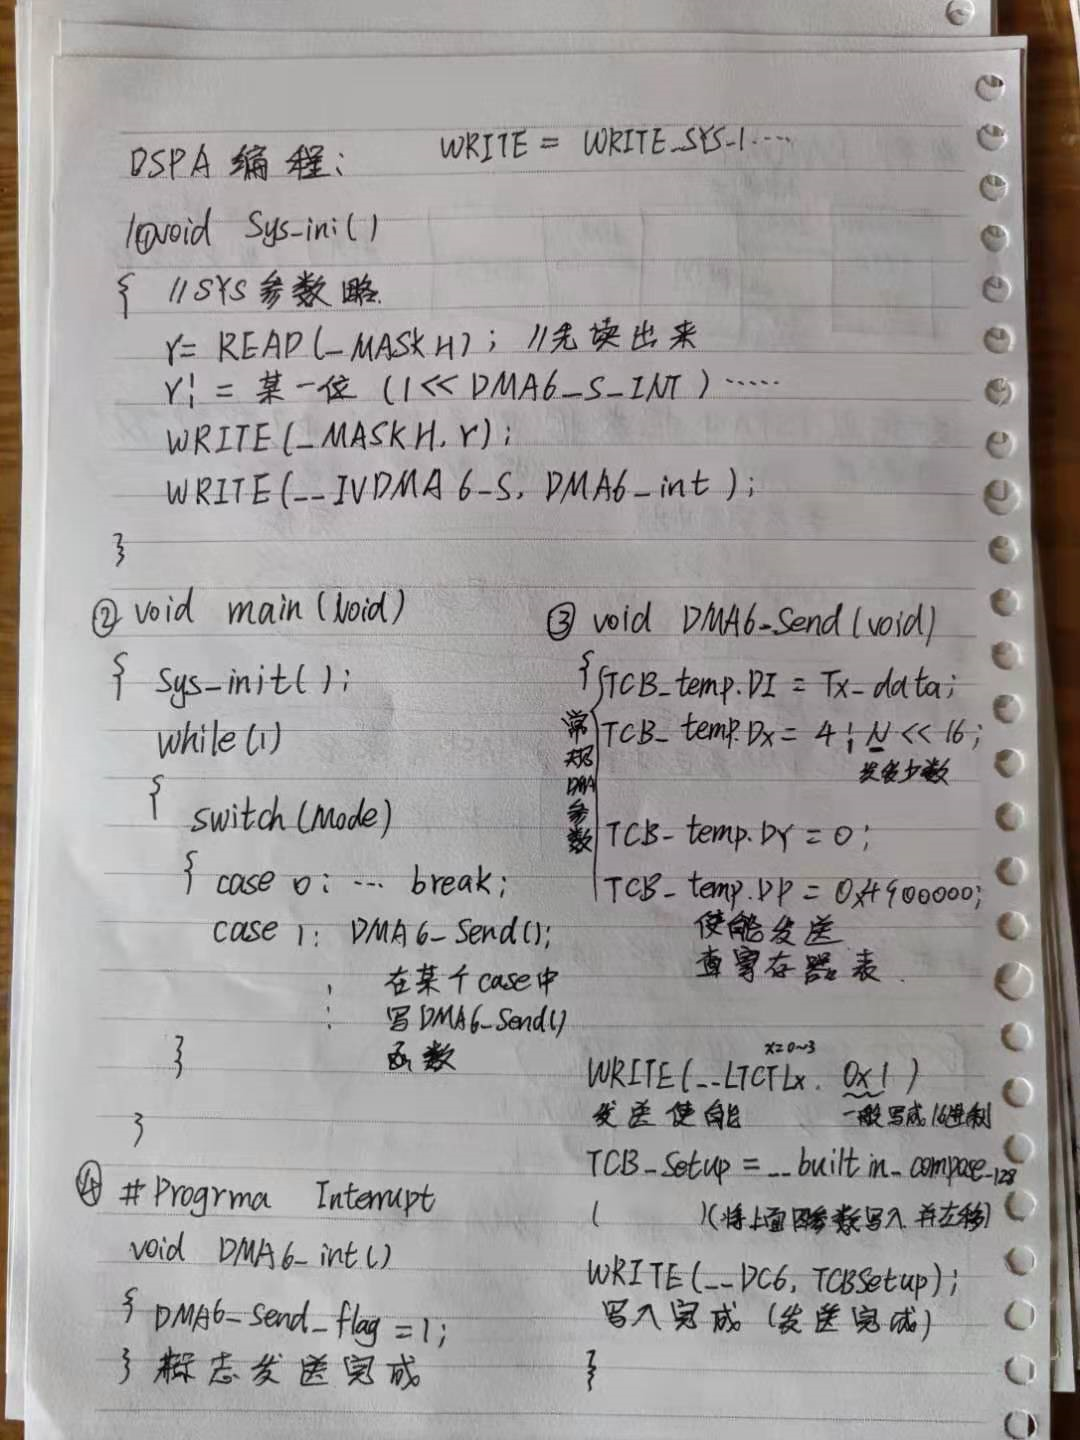 DSPA 编程:
WRITE = WRITE_SYS_1.....
1① void Sys_ini()
{ //SYS 参数略.
r= READ(_MASKH); //先读出来
r¦= 某一位 (1<< DMA6_S_INT) ......
WRITE(_MASKH, r);
WRITE(__IVDMA6_S, DMA6_int);
}
② void main(void)
{ Sys_init();
while(1)
{
switch(Mode)
{ case 0: ... break;
case 1: DMA6_Send();
在某个case中
写DMA6_Send()
函数
}
}
③ void DMA6_Send(void)
{ TCB_temp.DI = Tx_data;
TCB_temp.Dx = 4 ¦ N << 16;
发多少数
常规DMA参数
TCB_temp.DY = 0;
TCB_temp.DP = 0x4900000;
使能发送
查寄存器表.
x=0~3
WRITE(__LTCTLx, 0x1)
发送使能 一般写成16进制
TCB_Setup = __builtin_compose_128
( )(将上面四参数写入并左移)
WRITE(__DC6, TCBSetup);
写入完成 (发送完成)
}
④ #Progrma Interrupt
void DMA6_int()
{ DMA6_Send_flag = 1;
} 标志发送完成